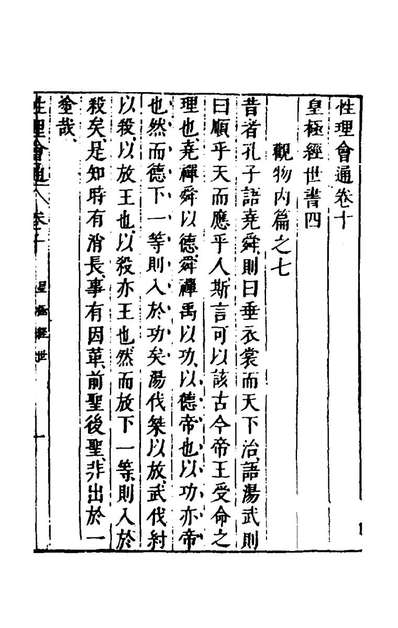 性理會通卷十
皇極經世書四
觀物內篇之七
昔者孔子語堯舜則曰垂衣裳而天下治語湯武則
曰順乎天而應乎人斯言可以該古今帝王受命之
理也堯禪舜以德舜禪禹以功以德帝也以功亦帝
也然而德下一等則入於功矣湯伐桀以放武伐紂
以殺以放王也以殺亦王也然而放下一等則入於
殺矣是知時有消長事有因革前聖後聖非出於一
塗哉
性理會通 卷十 皇極經世 一